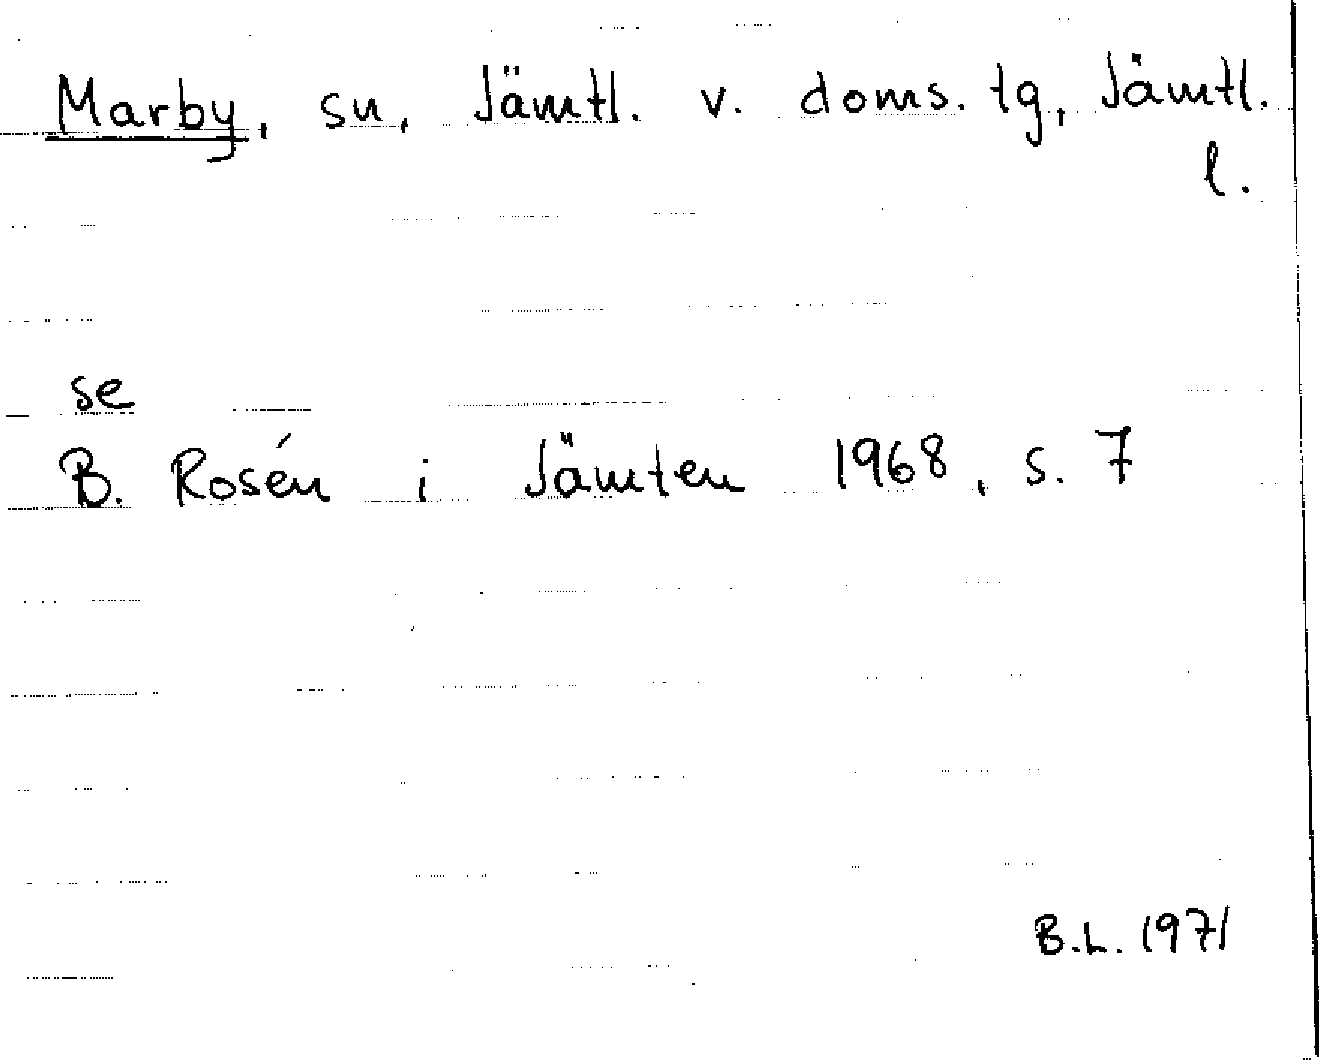 Marby, sn, Jämtl. v. doms. tg, Jämtl.
l.
se
B. Rosén i Jämten 1968, s. 7
B.L. 1971